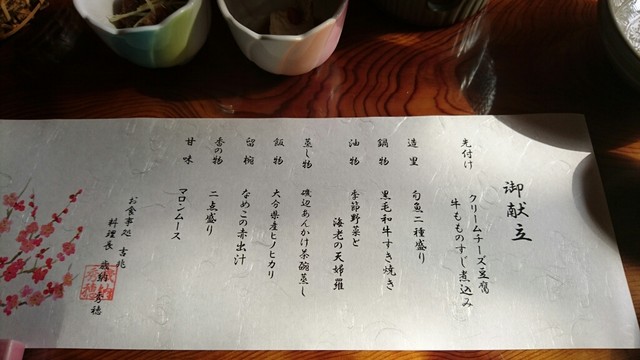 御献立
先付け クリームチーズ豆腐
牛もものすじ煮込み
造里 旬魚二種盛り
鍋物 黒毛和牛すき焼き
油物 季節野菜と
海老の天婦羅
蒸し物 磯辺あんかけ茶碗蒸し
飯物 大分県産ヒノヒカリ
留椀 なめこの赤出汁
香の物 二点盛り
甘味 マロンムース
お食事処 吉兆
料理長 歳納秀穂